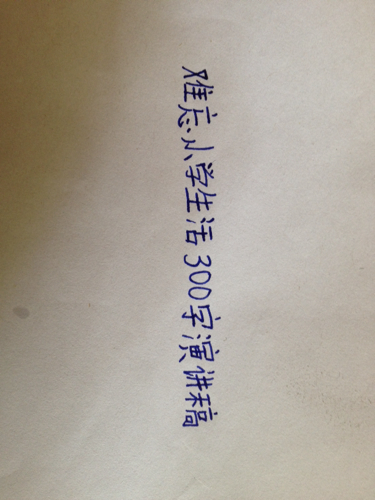 难忘小学生活300字演讲稿